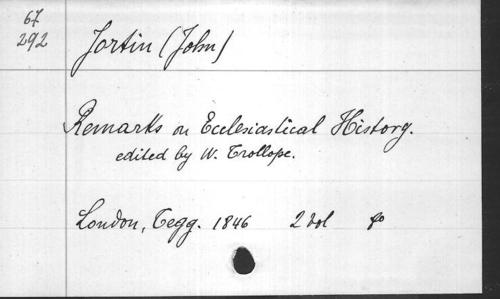 67
292
Jortin (John)
Remarks on Ecclesiastical History.
edited by W. Trollope.
London, Tegg. 1846 2 vol